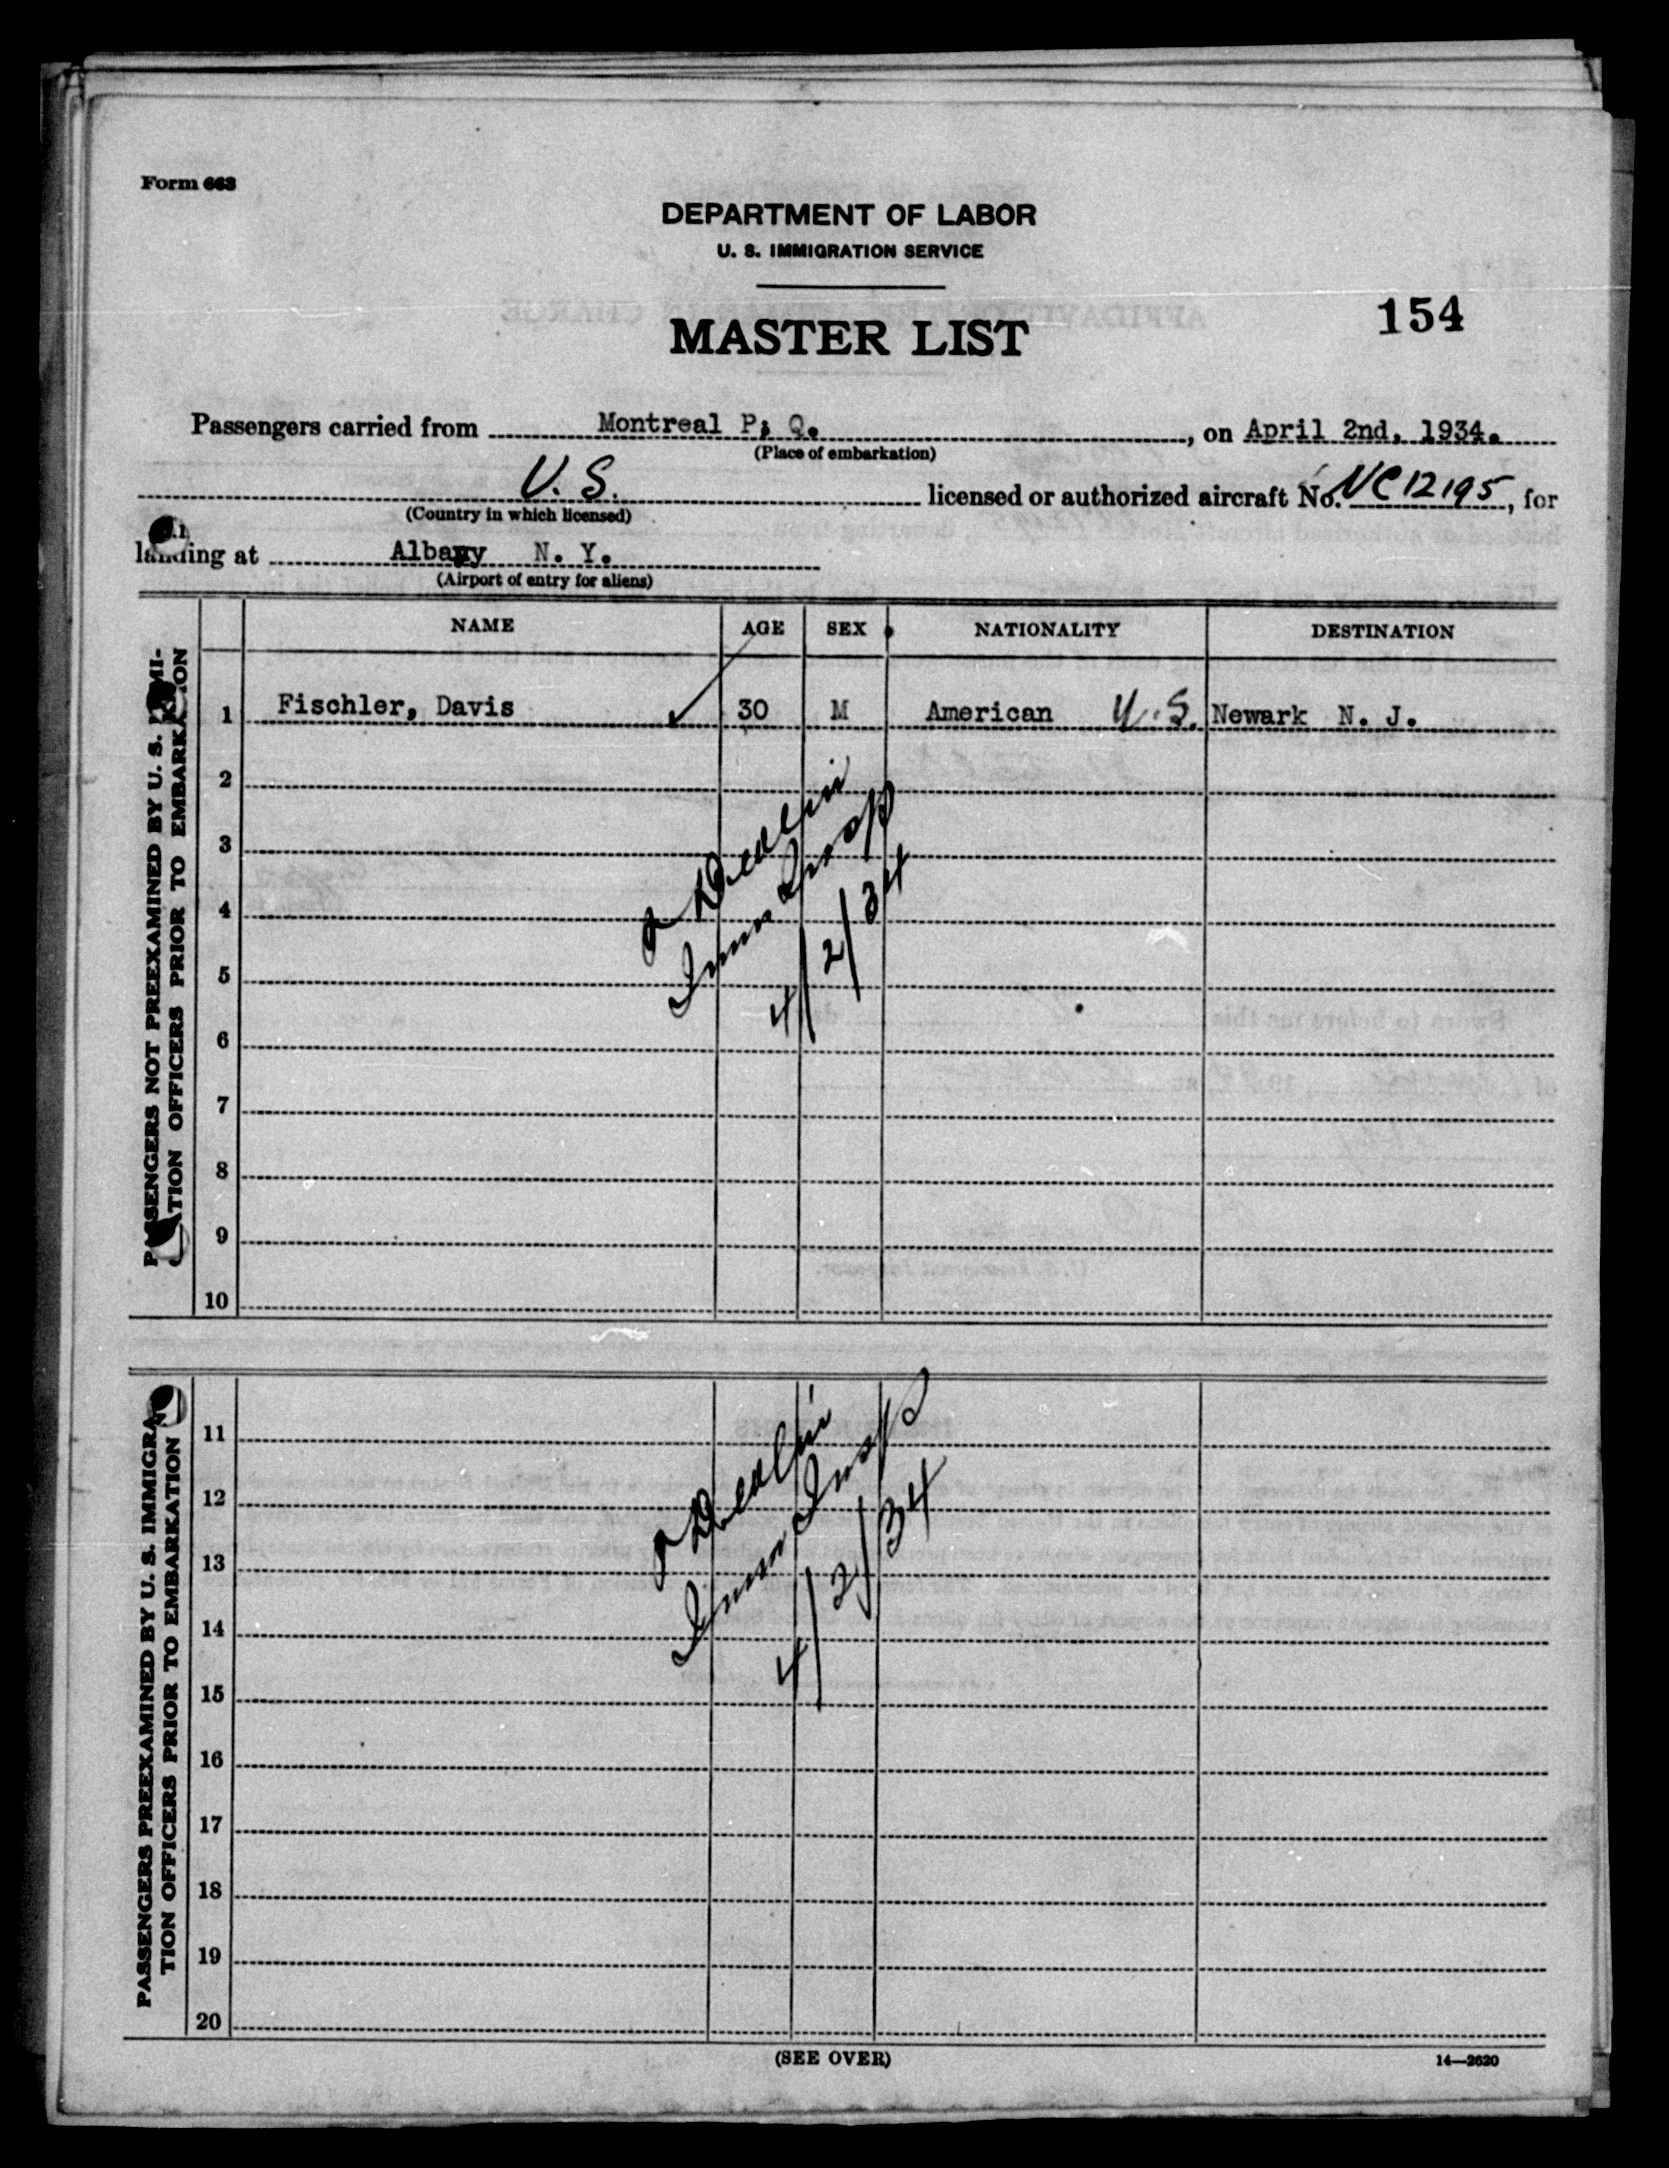 Form 663
DEPARTMENT OF LABOR
U. S. IMMIGRATION SERVICE
MASTER LIST
154
Passengers carried from Montreal P; Q. , on April 2nd, 1934.
(Place of embarkation)
U. S. licensed or authorized aircraft No. NC12195, for
(Country in which licensed)
landing at Albany N. Y.
(Airport of entry for aliens)
NAME AGE SEX NATIONALITY DESTINATION
PASSENGERS NOT PREEXAMINED BY U. S. IMMI-
GRATION OFFICERS PRIOR TO EMBARKATION
1 Fischler, Davis 30 M American U.S. Newark N. J.
2
3
4
5
6
7
8
9
10
Imm Insp
4/2/34
PASSENGERS PREEXAMINED BY U. S. IMMIGRA
TION OFFICERS PRIOR TO EMBARKATION
11
12
13
14
15
16
17
18
19
20
Imm Insp
4/2/34
(SEE OVER)
14—2620